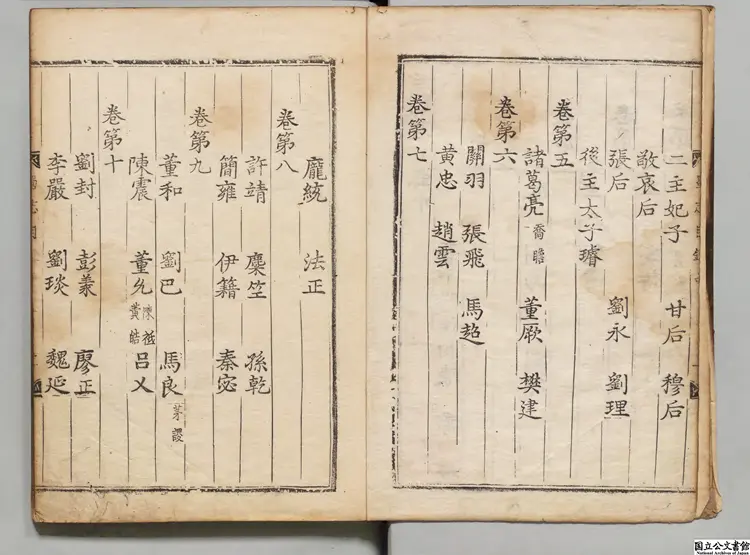 二主妃子 甘后 穆后
敬哀后
張后 劉永 劉理
後主太子璿
卷第五
諸葛亮 喬 瞻 董厥 樊建
卷第六
關羽 張飛 馬超
黄忠 趙雲
卷第七
龐統 法正
卷第八
許靖 麋竺 孫乾
簡雍 伊籍 秦宓
卷第九
董和 劉巴 馬良 茅謖
陳震 董允 陳祗 黄皓 呂乂
卷第十
劉封 彭羕 廖正
李嚴 劉琰 魏延
国立公文書館
National Archives of Japan